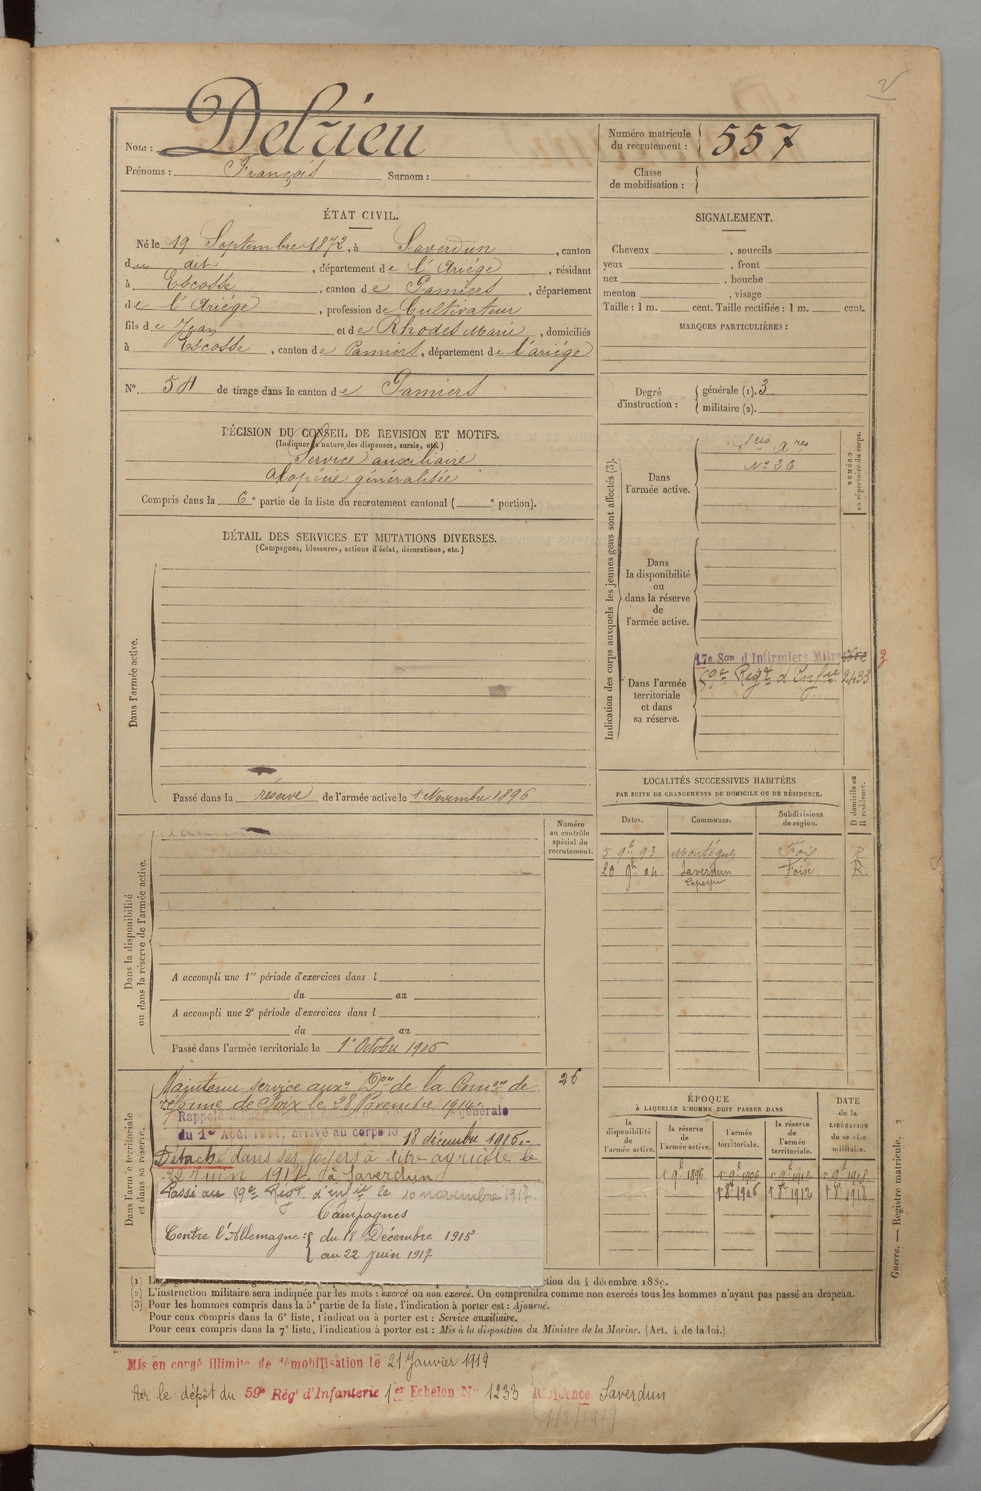 Nom : Delrieu
Prénoms : François Surnom :
Numéro matricule
du recrutement : 557
Classe
de mobilisation :
ÉTAT CIVIL.
Né le 19 Septembre 1872, à Saverdun, canton
du dit, département de l'Ariège, résidant
à Escosse, canton de Pamiers, département
de l'Ariège, profession de Cultivateur
fils de Jean et de Rhodes Marie, domiciliés
à Escosse, canton de Pamiers, département de l'ariège
N° 54 de tirage dans le canton de Pamiers
DÉCISION DU CONSEIL DE REVISION ET MOTIFS.
(Indiquer la nature des dispenses, sursis, etc.)
Service auxiliaire
alopécie généralisée
Compris dans la 6e partie de la liste du recrutement cantonal ( e portion).
DÉTAIL DES SERVICES ET MUTATIONS DIVERSES.
(Campagnes, blessures, actions d'éclat, décorations, etc.)
Dans l'armée active.
Passé dans la réserve de l'armée active le 1 Novembre 1896
Numéro
au contrôle
spécial du
recrutement.
Dans la disponibilité
ou dans la réserve de l'armée active.
A accompli une 1re période d'exercices dans l
du au
A accompli une 2e période d'exercices dans l
du au
Passé dans l'armée territoriale le 1er Octobre 1906
Dans l'armée territoriale
et dans sa réserve.
26
Maintenu service auxre Don de la Comon de
réforme de Foix le 28 Novembre 1914.
Rappelé générale
du 1er Août 1914, arrivé au corps le 18 décembre 1915.-
Détaché dans ses foyers à titre agricole le
22 Juin 1917 à Saverdun
Passé au 59e Régt d'infie le 10 novembre 1917.
Campagnes
Contre l'Allemagne : du 18 Décembre 1915
au 22 Juin 1917
SIGNALEMENT.
Cheveux , sourcils
yeux , front
nez , bouche
menton , visage
Taille : 1 m. cent. Taille rectifiée : 1 m. cent.
MARQUES PARTICULIÈRES :
Degré
d'instruction :
générale (1). 3
militaire (2).
Indication des corps auxquels les jeunes gens sont affectés (3).
NUMÉRO
au répertoire du corps.
Dans
l'armée active.
No 26
Dans
la disponibilité
ou
dans la réserve
de
l'armée active.
Dans l'armée
territoriale
et dans
sa réserve.
17e Son d'Infirmiers Mitres
59e Régt d'Infie 2433
LOCALITÉS SUCCESSIVES HABITÉES
PAR SUITE DE CHANGEMENTS DE DOMICILE OU DE RÉSIDENCE.
Dates. Communes. Subdivisions
de région. D domicile ou
R résidence.
5 9bre 93 Montégut Foix R
20 9bre 04 Saverdun Foix R
ÉPOQUE
À LAQUELLE L'HOMME DOIT PASSER DANS
DATE
de la
LIBÉRATION
du service
militaire.
la
disponibilité
de
l'armée active.
la réserve
de
l'armée active.
l'armée
territoriale.
la réserve
de
l'armée
territoriale.
1 9e 1896 1 9e 1906 1 9e 1912 1 9e 1918
1 8e 1906 1 8e 1912 1 8e 1918
ction du 4 décembre 1889.
(2) L'instruction militaire sera indiquée par les mots : exercé ou non exercé. On comprendra comme non exercés tous les hommes n'ayant pas passé au drapeau.
(3) Pour les hommes compris dans la 5e partie de la liste, l'indication à porter est : Ajourné.
Pour ceux compris dans la 6e liste, l'indication à porter est : Service auxiliaire.
Pour ceux compris dans la 7e liste, l'indication à porter est : Mis à la disposition du Ministre de la Marine. (Art. 4 de la loi.)
Guerre. — Registre matricule. 2
Mis en congé illimité de démobilisation le 21 Janvier 1919
Par le dépôt du 59e Régt d'Infanterie 1er Echelon No 1233 Résidence Saverdun